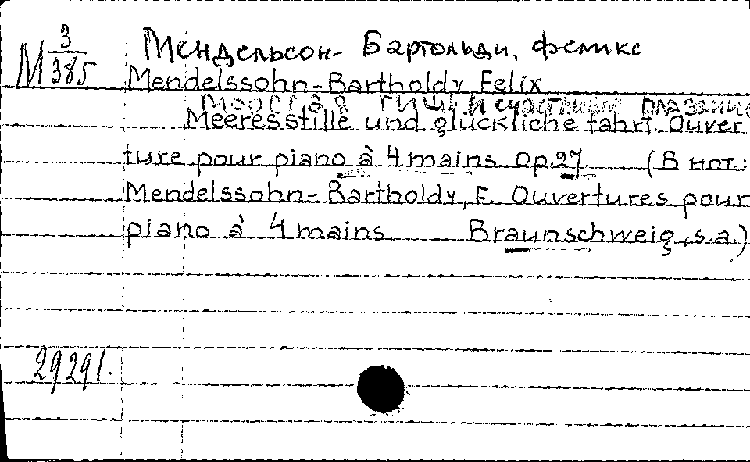 М 3/385
Мендельсон-Бартольди, Феликс
Mendelssohn-Bartholdy Felix
Морская тишь и счастливое плавание
Meeresstille und glückliche fahrt. Ouver-
ture pour piano à 4 mains Op. 27 (В нот.:
Mendelssohn-Bartholdy, F. Ouvertures pour
piano à 4 mains Braunschweig, s.a.)
29291.